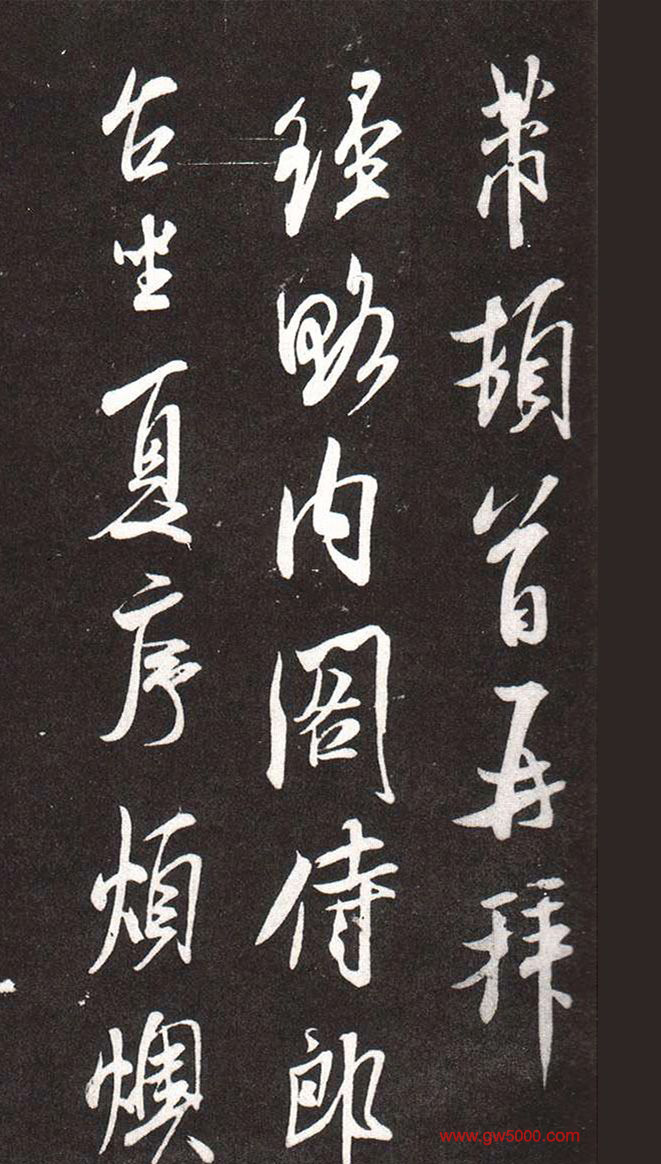 芾頓首再拜
經略內閣侍郎
台坐夏序煩燠
www.gw5000.com